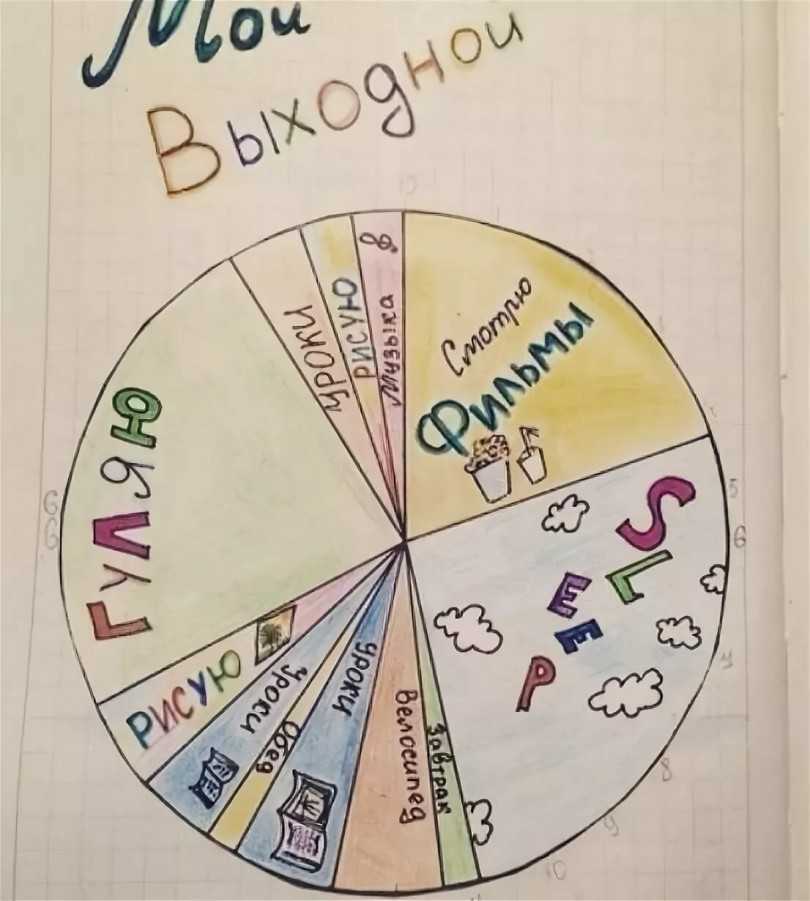 Мой
Выходной
Смотрю
Фильмы
SLEEP
Завтрак
Велосипед
уроки
Обед
уроки
РИСУЮ
ГУЛЯЮ
УРОКИ
РИСУЮ
Музыка
5
6
8
9
10
6
6